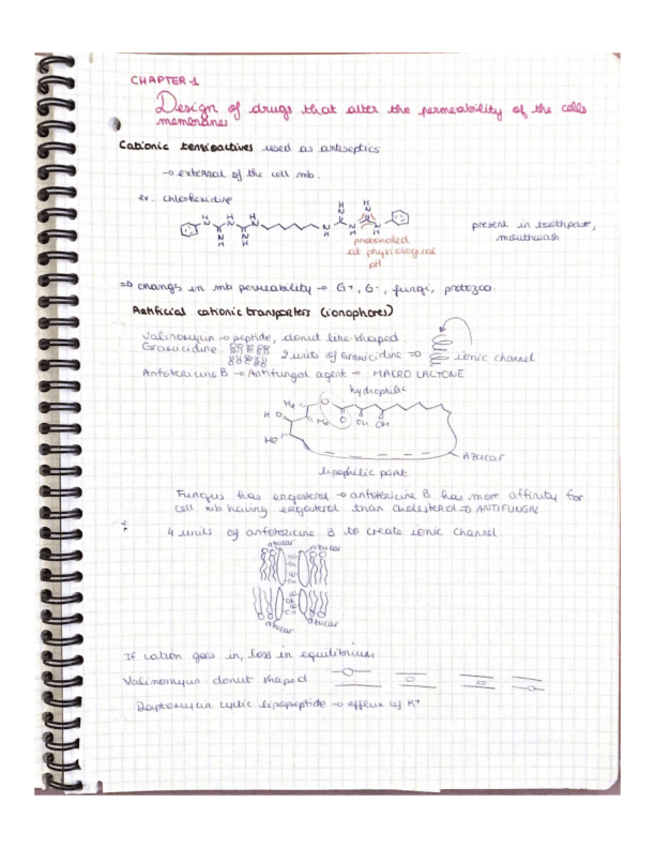 CHAPTER-1
Design of drugs that alter the permeability of the cells
membranes
Cationic tensioactives used as antiseptics
→ external of the cell mb.
ex. chlorhexidine
H H H NH NH
N N N N N N
NH NH H H H
present in toothpaste,
mouthwash
protonated
at physiological
pH
⇒ changs in mb permeability → G+, G-, fungi, protozoa
Artificial cationic transporters (ionophores)
Valinomycin → peptide, donut like-shaped
Gramicidine 2 units of Gramicidine ⇒ ionic channel
Anfotericine B → Antifungal agent → MACRO LACTONE
hydrophilic
Me O
HO Me O OH OH
HO
AZUCAR
lipophilic part
Fungus has ergosterol → anfotericine B has more affinity for
cell mb having ergosterol than cholesterol ⇒ ANTIFUNGAL
4 units of anfotericine B to create ionic channel
azucar azucar
azucar azucar
If cation goes in, loss in equilibrium
Valinomycin donut shaped
Daptomycin cyclic lipopeptide → efflux of K+